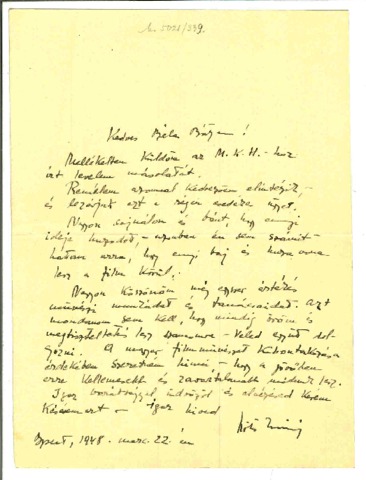 M. 5021/339.
Kedves Béla Bátyám!
Mellékelten küldöm az M.K.H.-hoz
írt levelem másolatát.
Remélem azonnal kedvezően elintézik,-
és lezárjuk ezt a régen esedékes ügyet.
Nagyon sajnálom és bánt, hogy ennyi
ideje húzódott, - azonban én sem számít-
hattam arra, hogy ennyi baj és huzavona
lesz a film körül.
Nagyon köszönöm még egyszer értékes
művészi munkádat és tanácsaidat. Azt
mondanom sem kell, hogy mindig öröm és
megtiszteltetés lesz számomra - Veled együtt dol-
gozni. A magyar filmművészet kibontakozása
érdekében szeretném hinni - hogy a jövőben
erre kellemesebb és zavartalanabb módunk lesz.
Igaz barátsággal üdvözöl és
- Igaz híved
Bpest, 1948. márc. 22.-én